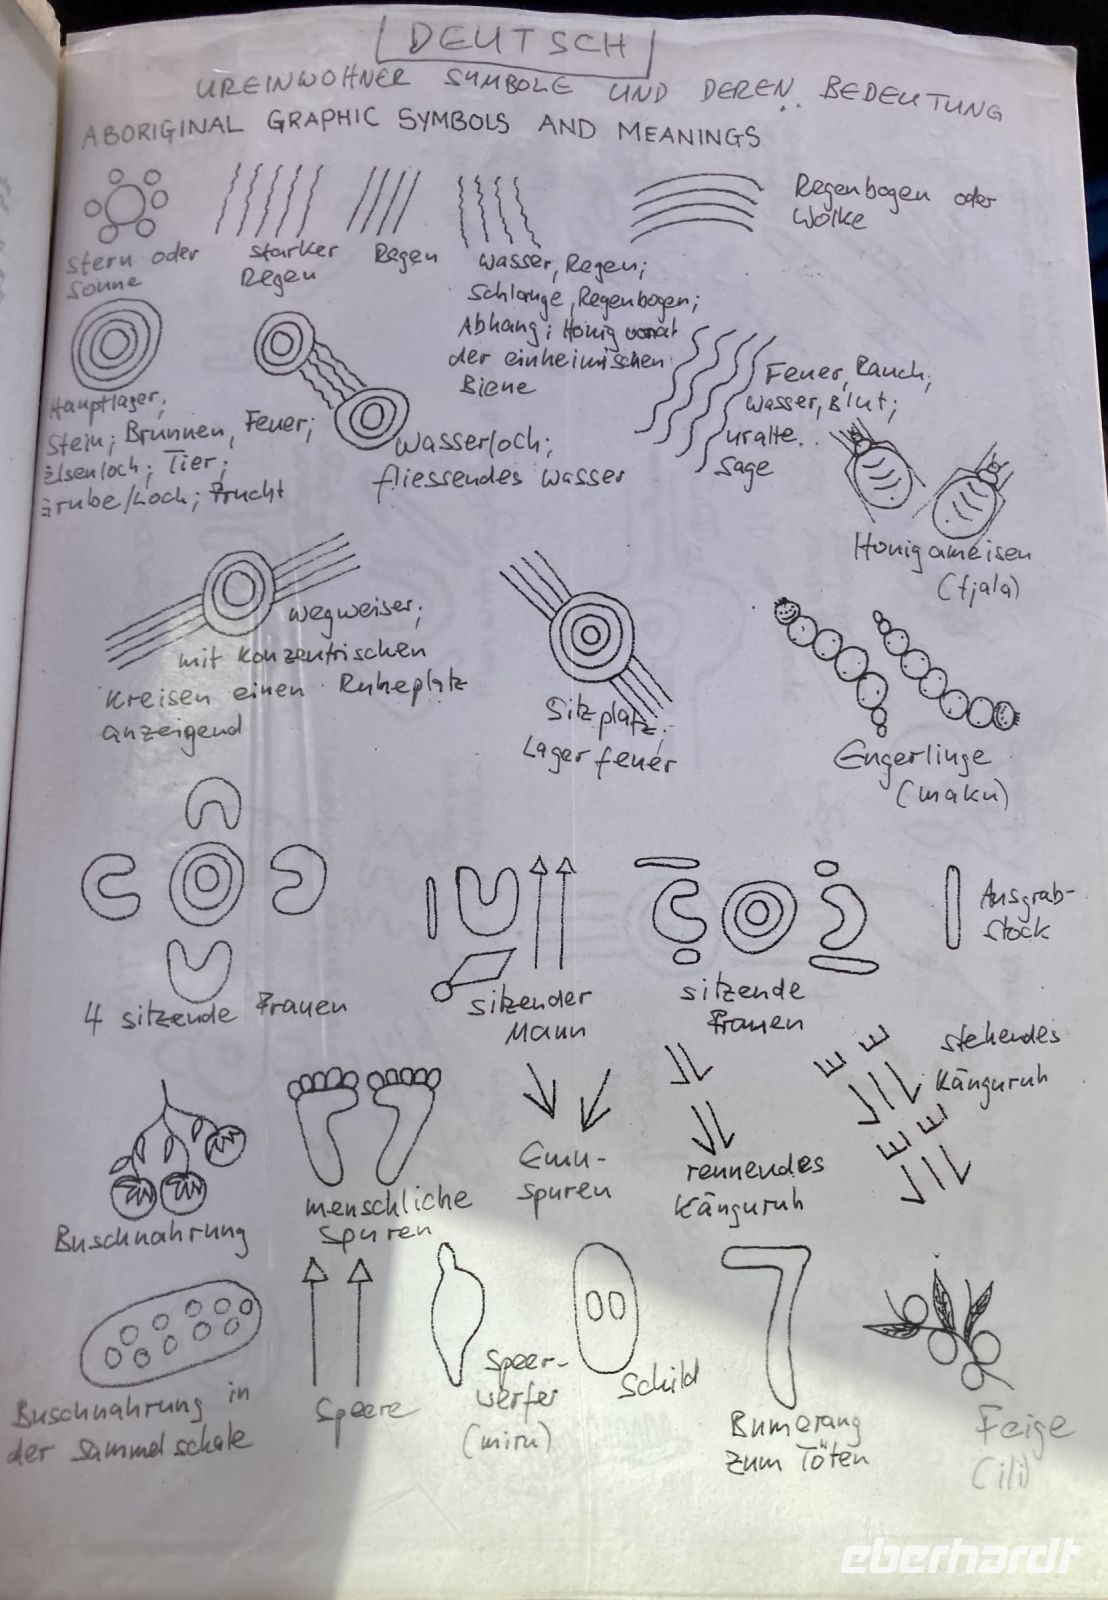 DEUTSCH
UREINWOHNER SYMBOLE UND DEREN BEDEUTUNG
ABORIGINAL GRAPHIC SYMBOLS AND MEANINGS
Stern oder
Sonne
starker
Regen
Regen
Wasser, Regen;
Schlange, Regenbogen;
Abhang; Honig
der einheimischen
Biene
Regenbogen oder
Wolke
Hauptlager;
Stein; Brunnen, Feuer;
elsenloch; Tier;
Grube/Loch; Frucht
Wasserloch;
fliessendes Wasser
Feuer, Rauch;
Wasser, Blut;
uralte..
Sage
Honigameisen
(tjala)
Wegweiser;
mit konzentrischen
Kreisen einen Ruheplatz
anzeigend
Sitzplatz;
Lagerfeuer
Engerlinge
(maku)
4 sitzende Frauen
sitzender
Mann
sitzende
Frauen
Ausgrab-
stock
Buschnahrung
menschliche
Spuren
Emu-
spuren
rennendes
Känguruh
stehendes
Känguruh
Buschnahrung in
der Sammelschale
Speere
Speer-
werfer
(miru)
Schild
Bumerang
zum Töten
Feige
(ili)
eberhardt